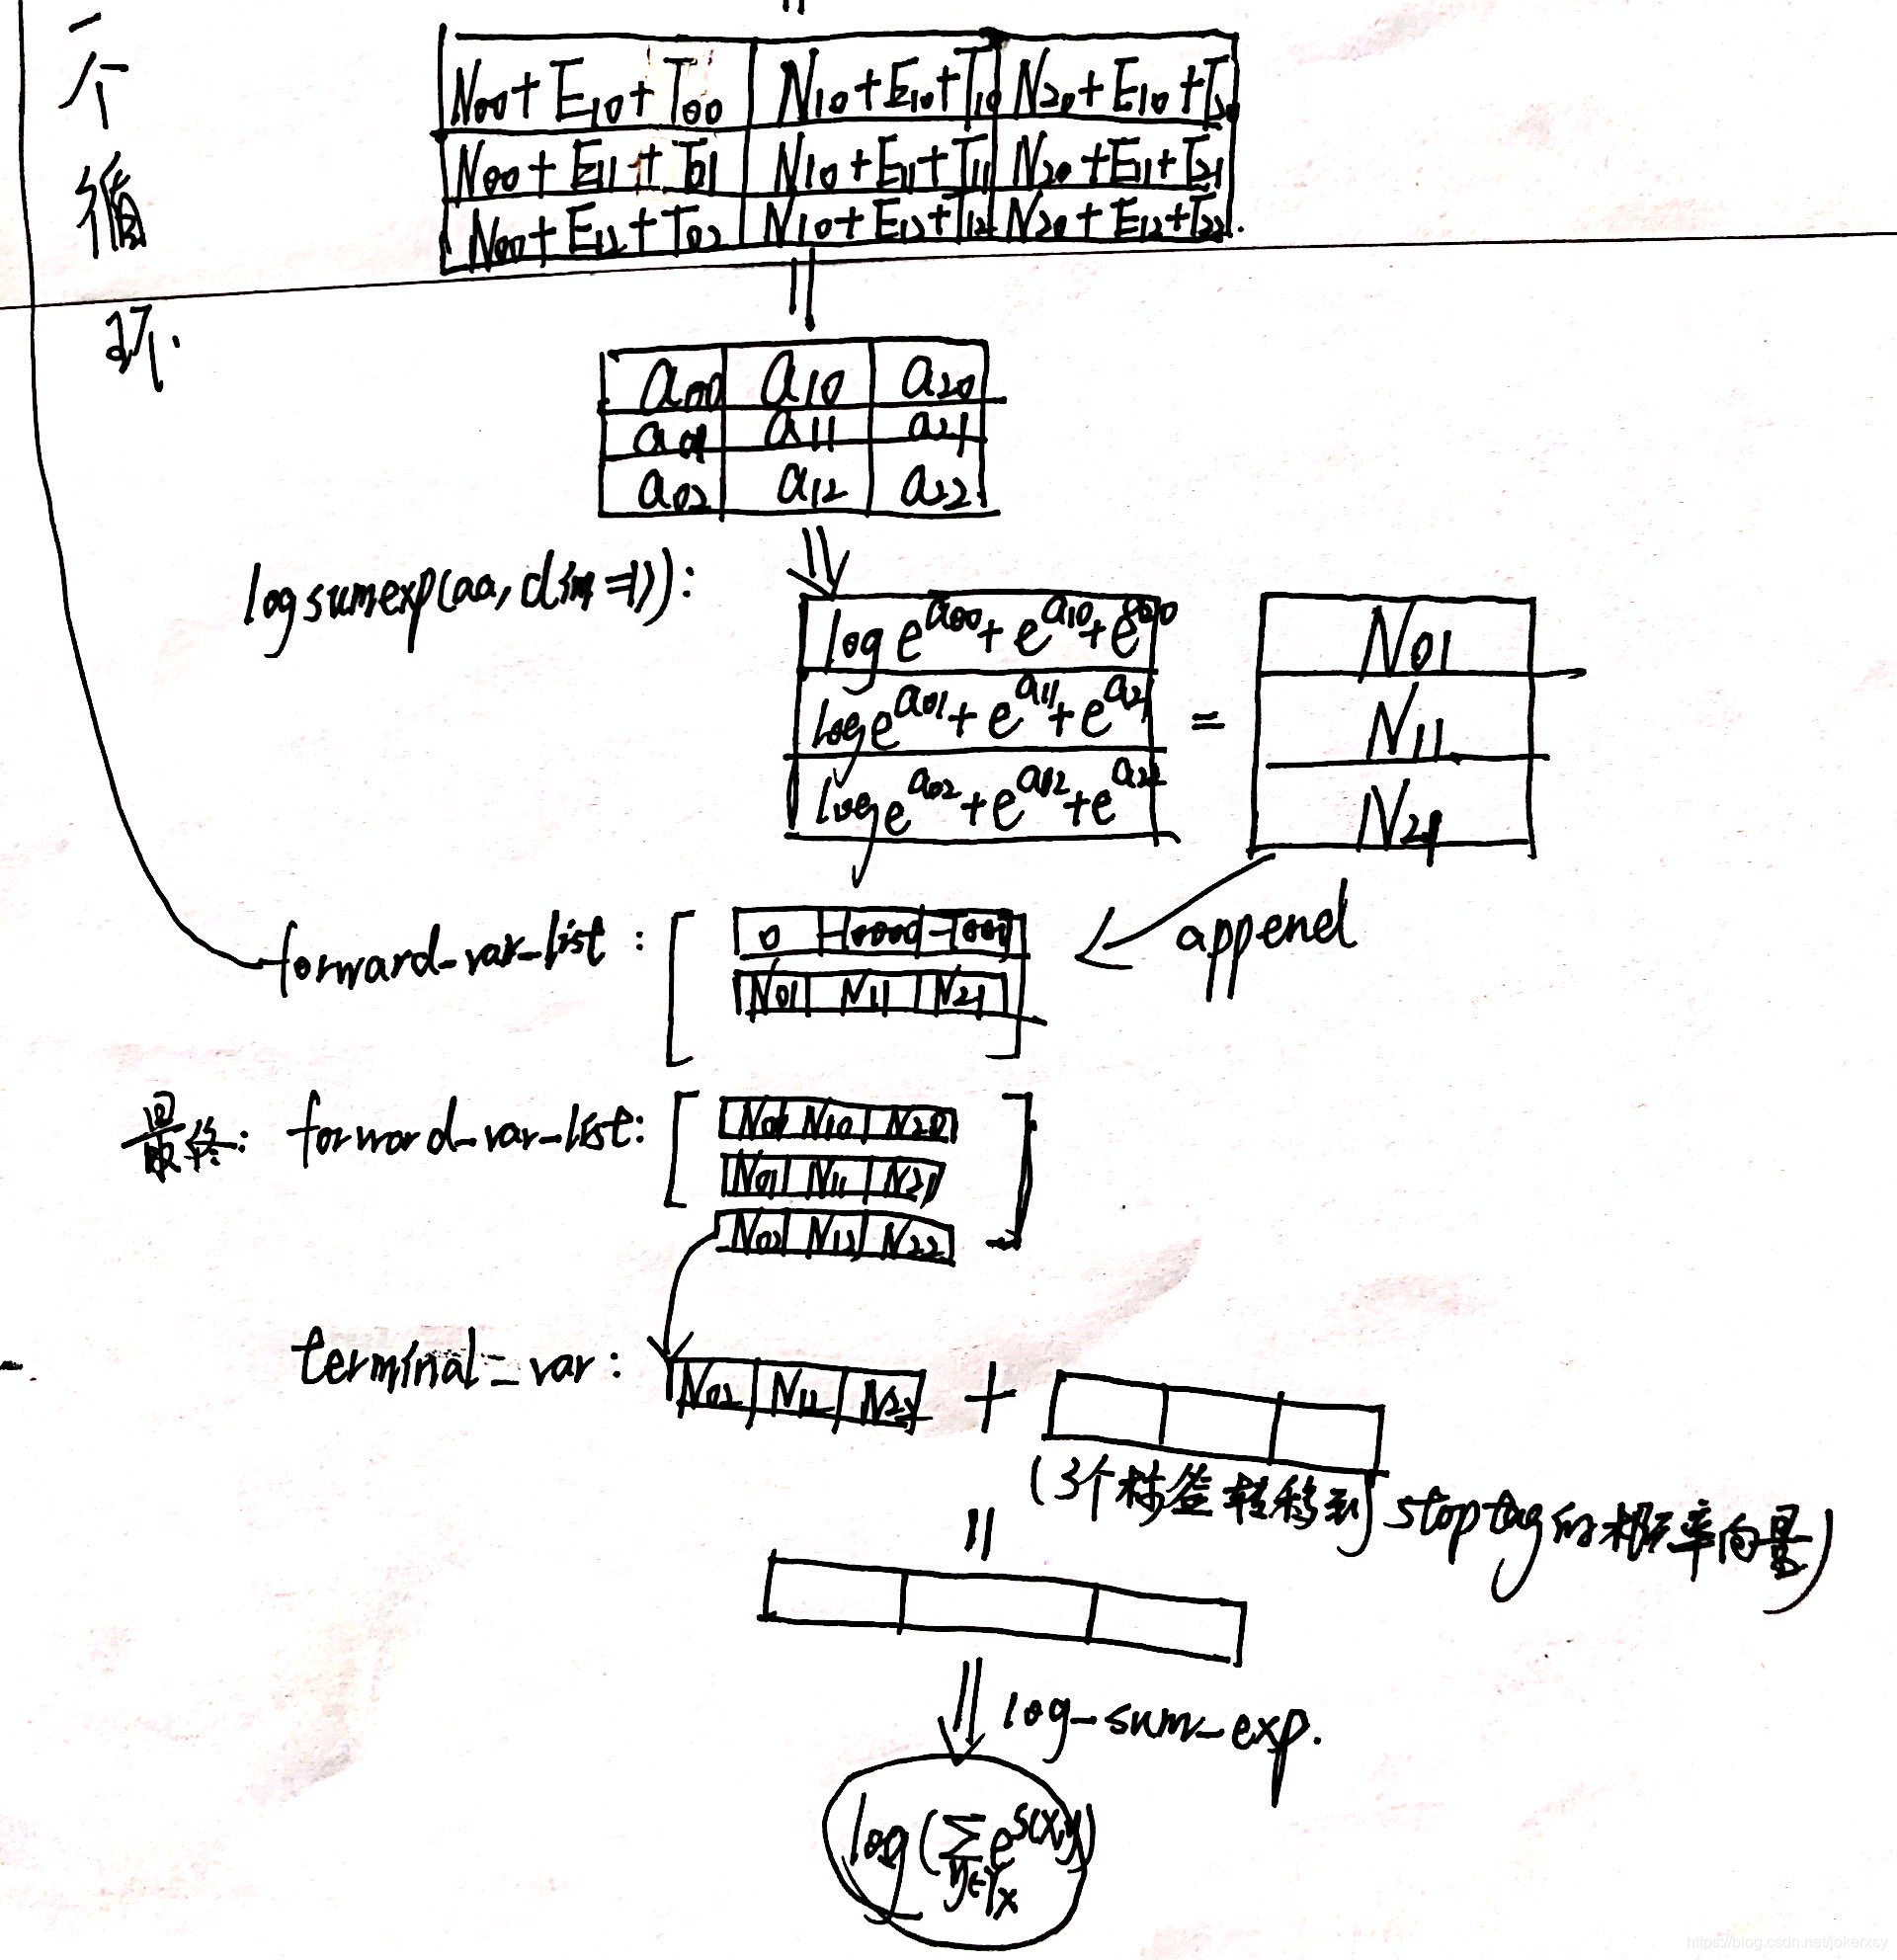 一个循环.
N00+E10+T00 N10+E10+T10 N20+E10+T20
N00+E11+T01 N10+E11+T11 N20+E11+T21
N00+E12+T02 N10+E12+T12 N20+E12+T22.
a00 a10 a20
a01 a11 a21
a02 a12 a22
logsumexp(aa, dim=1)):
log e^a00 + e^a10 + e^a20 N01
log e^a01 + e^a11 + e^a21 = N11
log e^a02 + e^a12 + e^a22 N21
append
forward_var_list: [ 0 -10000 -10000
N01 N11 N21 ]
最终: forward_var_list: [ N00 N10 N20
N01 N11 N21
N02 N12 N22 ]
terminal_var: N02 N12 N22 +
(3个标签转移到stoptag的概率向量)
log_sum_exp.
log(∑y∈Yx e^S(X,y))
https://blog.csdn.net/jokerxsy